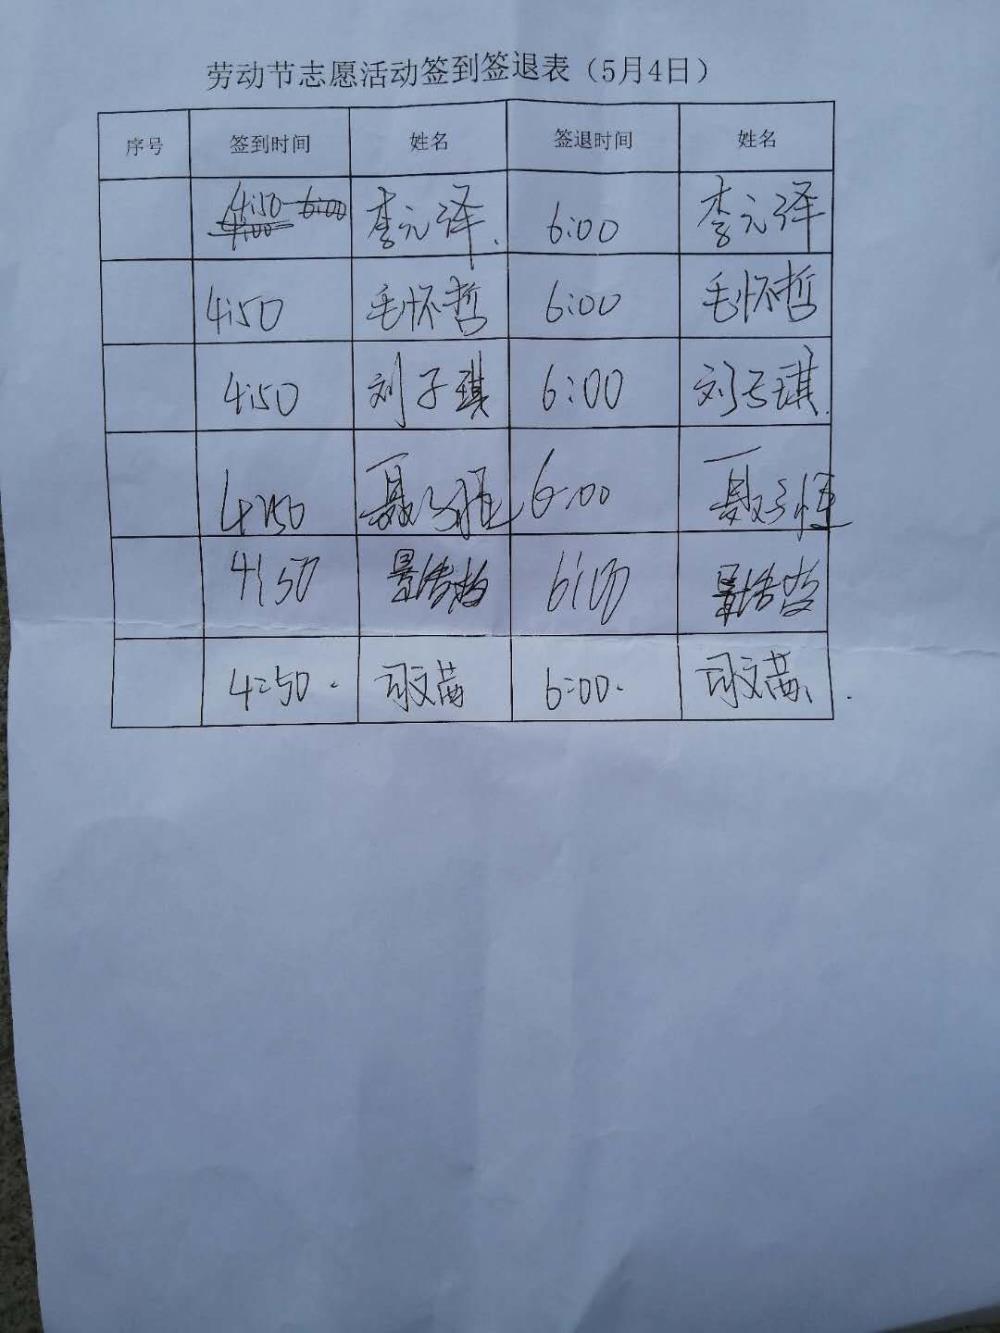 劳动节志愿活动签到签退表（5月4日）
序号 签到时间 姓名 签退时间 姓名
4:50 6:00 李元泽. 6:00 李元泽
4:50 毛怀哲 6:00 毛怀哲
4:50 刘子琪 6:00 刘子琪.
4:50 聂子恒 6:00 聂子恒
4:50 景浩 6:00 景浩
4:50. 司文茜 6:00. 司文茜.